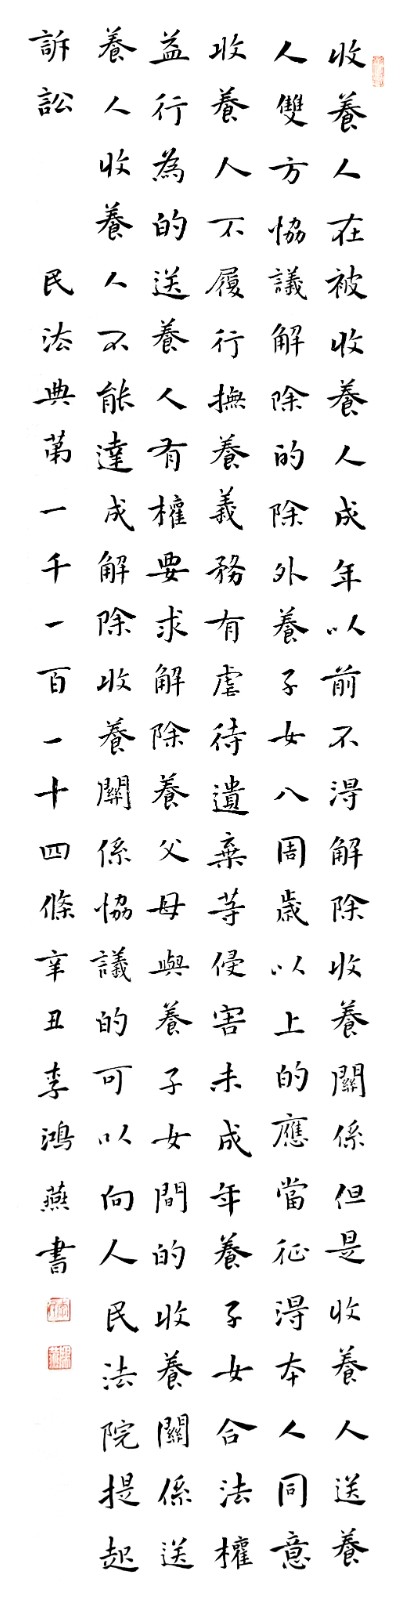 收養人在被收養人成年以前不得解除收養關係但是收養人送養
人雙方協議解除的除外養子女八周歲以上的應當征得本人同意
收養人不履行撫養義務有虐待遺棄等侵害未成年養子女合法權
益行為的送養人有權要求解除養父母與養子女間的收養關係送
養人收養人不能達成解除收養關係協議的可以向人民法院提起
訴訟 民法典第一千一百一十四條辛丑李鴻燕書